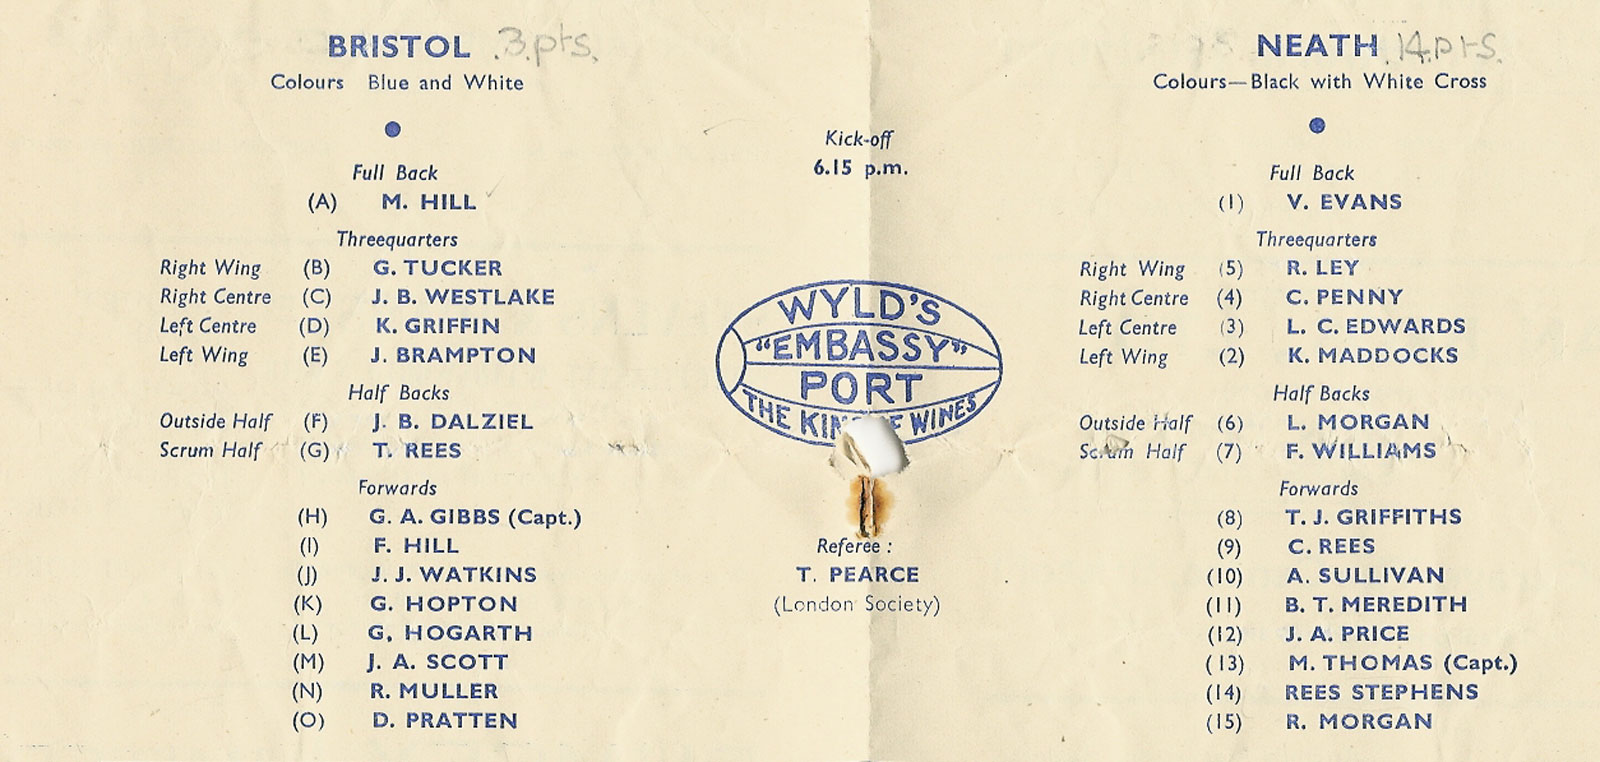 BRISTOL 3 pts.
Colours Blue and White
Full Back
(A) M. HILL
Threequarters
Right Wing (B) G. TUCKER
Right Centre (C) J. B. WESTLAKE
Left Centre (D) K. GRIFFIN
Left Wing (E) J. BRAMPTON
Half Backs
Outside Half (F) J. B. DALZIEL
Scrum Half (G) T. REES
Forwards
(H) G. A. GIBBS (Capt.)
(I) F. HILL
(J) J. J. WATKINS
(K) G. HOPTON
(L) G. HOGARTH
(M) J. A. SCOTT
(N) R. MULLER
(O) D. PRATTEN
Kick-off
6.15 p.m.
WYLD'S
"EMBASSY"
PORT
THE WINES
Referee :
T. PEARCE
(London Society)
NEATH 14 pts.
Colours—Black with White Cross
Full Back
(1) V. EVANS
Threequarters
Right Wing (5) R. LEY
Right Centre (4) C. PENNY
Left Centre (3) L. C. EDWARDS
Left Wing (2) K. MADDOCKS
Half Backs
Outside Half (6) L. MORGAN
Scrum Half (7) F. WILLIAMS
Forwards
(8) T. J. GRIFFITHS
(9) C. REES
(10) A. SULLIVAN
(11) B. T. MEREDITH
(12) J. A. PRICE
(13) M. THOMAS (Capt.)
(14) REES STEPHENS
(15) R. MORGAN